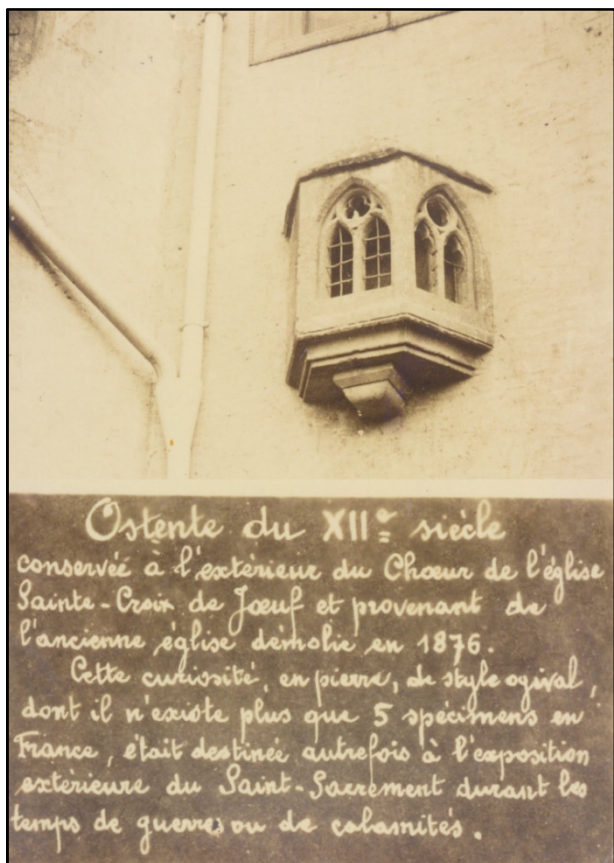 Ostente du XIIe siècle
conservée à l'extérieur du Chœur de l'église
Sainte-Croix de Jœuf et provenant de
l'ancienne église démolie en 1876.
Cette curiosité, en pierre, de style ogival,
dont il n'existe plus que 5 spécimens en
France, était destinée autrefois à l'exposition
extérieure du Saint-Sacrement durant les
temps de guerre ou de calamités.